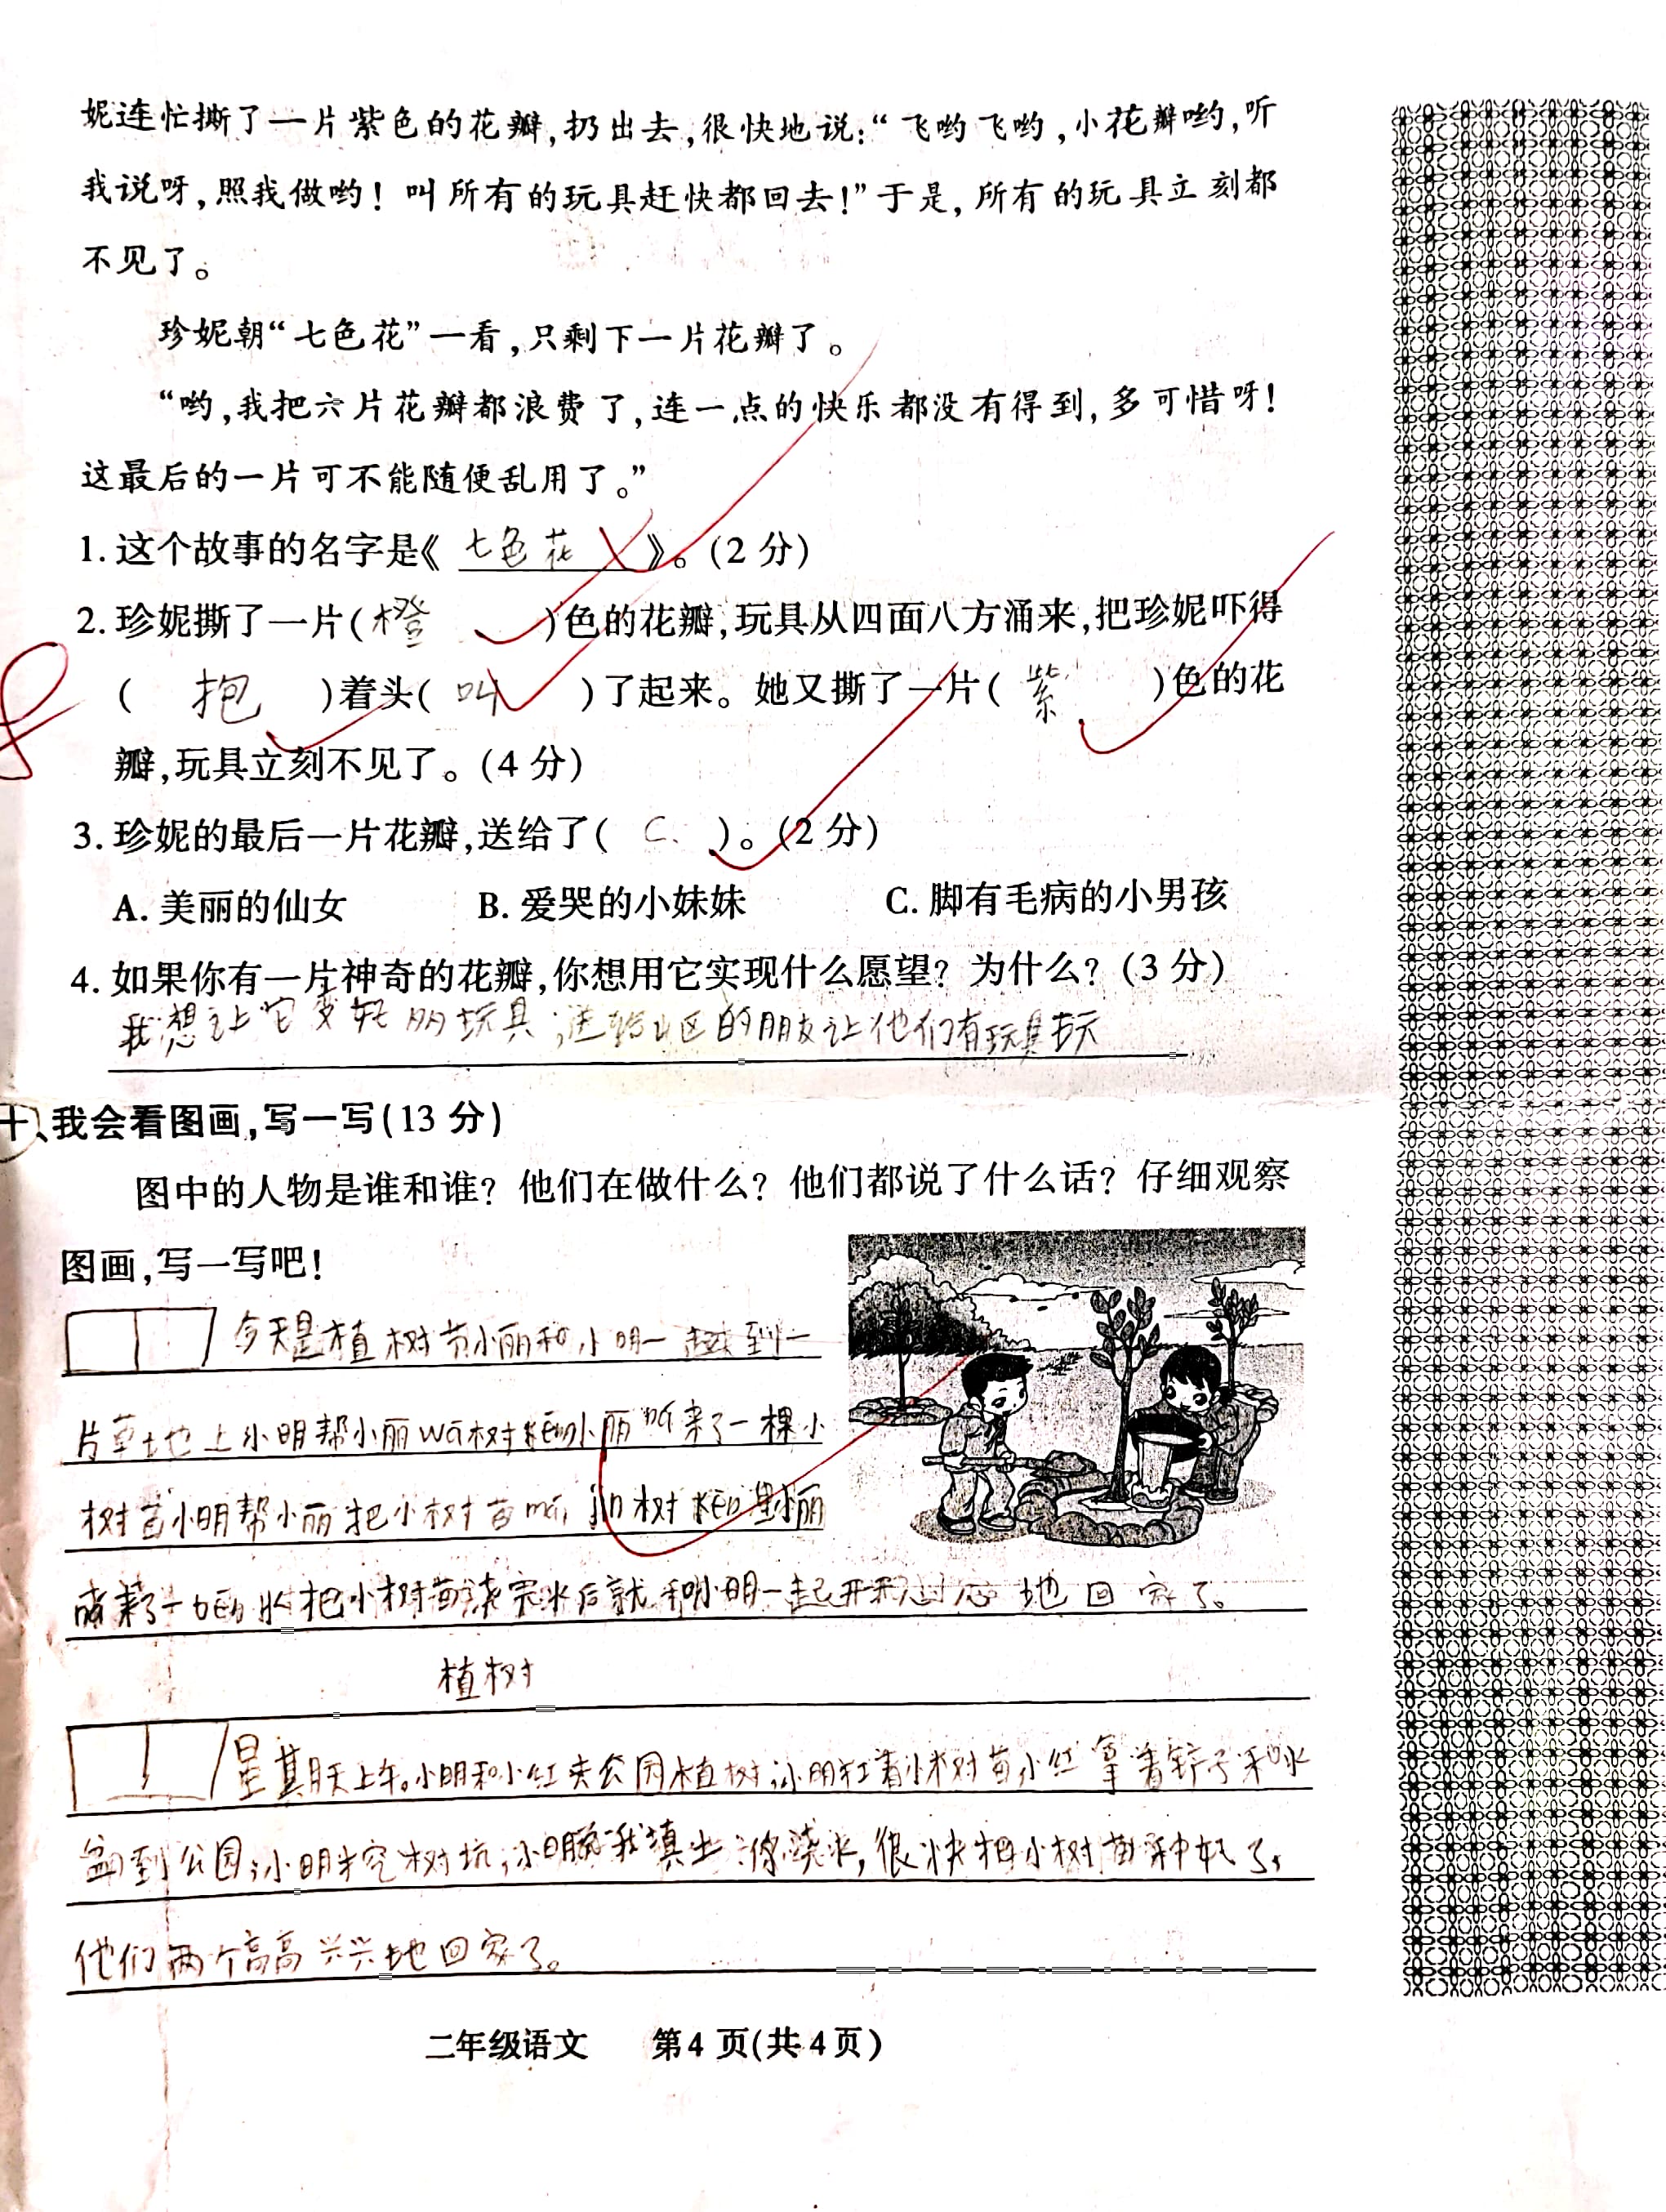 妮连忙撕了一片紫色的花瓣,扔出去,很快地说:“飞哟飞哟,小花瓣哟,听
我说呀,照我做哟!叫所有的玩具赶快都回去!”于是,所有的玩具立刻都
不见了。
珍妮朝“七色花”一看,只剩下一片花瓣了。
“哟,我把六片花瓣都浪费了,连一点的快乐都没有得到,多可惜呀!
这最后的一片可不能随便乱用了。”
1.这个故事的名字是《 七色花 》。(2分)
2.珍妮撕了一片(橙)色的花瓣,玩具从四面八方涌来,把珍妮吓得
(抱)着头(叫)了起来。她又撕了一片(紫)色的花
瓣,玩具立刻不见了。(4分)
3.珍妮的最后一片花瓣,送给了( C. )。(2分)
A.美丽的仙女 B.爱哭的小妹妹 C.脚有毛病的小男孩
4.如果你有一片神奇的花瓣,你想用它实现什么愿望?为什么?(3分)
我想让它变好多玩具,送给山区的朋友让他们有玩具玩
十、我会看图画,写一写(13分)
图中的人物是谁和谁?他们在做什么?他们都说了什么话?仔细观察
图画,写一写吧!
今天是植树节小丽和小明一起到一
片草土地上小明帮小丽wā树kēng小丽 来了一棵小
树苗小明帮小丽把小树苗 jìn树kēn里小丽
来了一 水把小树苗浇完水后就和小明一起开开心心地回家了。
植树
星其月天上午。小明和小红去公园植树,小明扛着小树苗,小红拿着铲子和水
到公园,小明挖树坑,小明说我填土,你浇水,很快把小树苗种好了,
他们两个高高兴兴地回家了。
二年级语文 第4页(共4页)